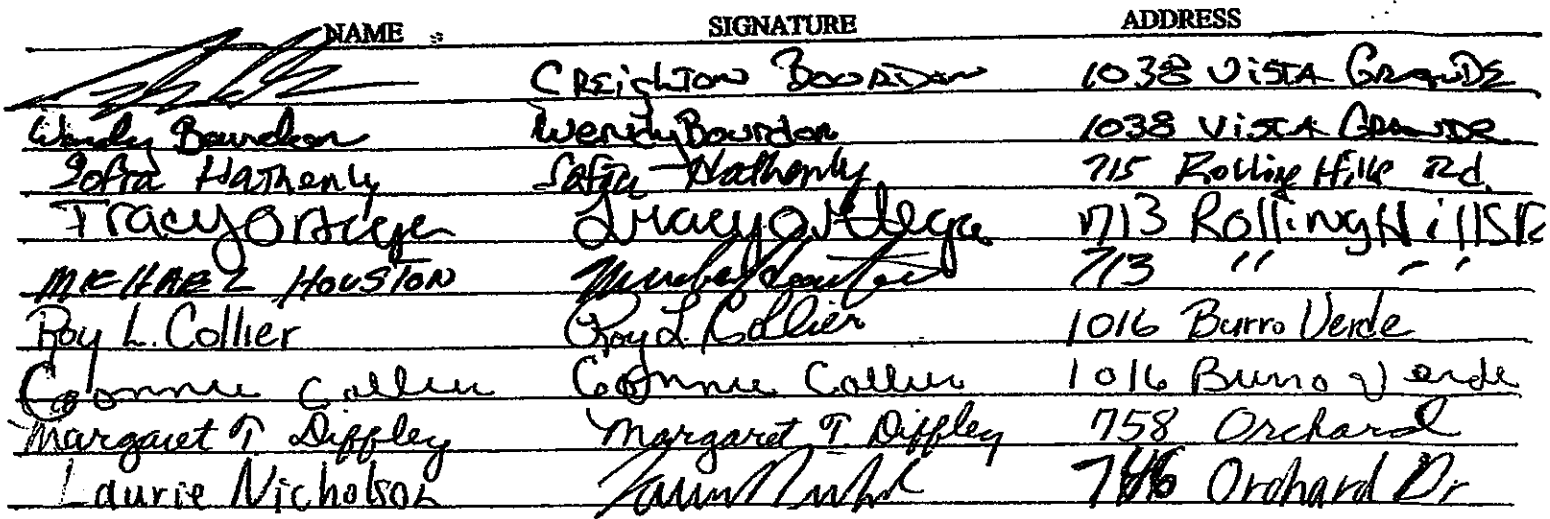 NAME SIGNATURE ADDRESS
CREighTON BOURDON 1038 ViSTA GRANDE
Wendy Bourdon Wendy Bourdon 1038 ViSTA GRANDE
Hathenly Hathenly 715 Rolling Hills Rd.
Tracy Ortega Tracy Ortega 713 Rolling Hills
MICHAEL HOUSTON 713 " "
Roy L. Collier Roy L. Collier 1016 Burro Verde
Connie Collier Connie Collier 1016 Burro Verde
Margaret T Diffley Margaret T. Diffley 758 Orchard
Laurie Nicholson Orchard Dr